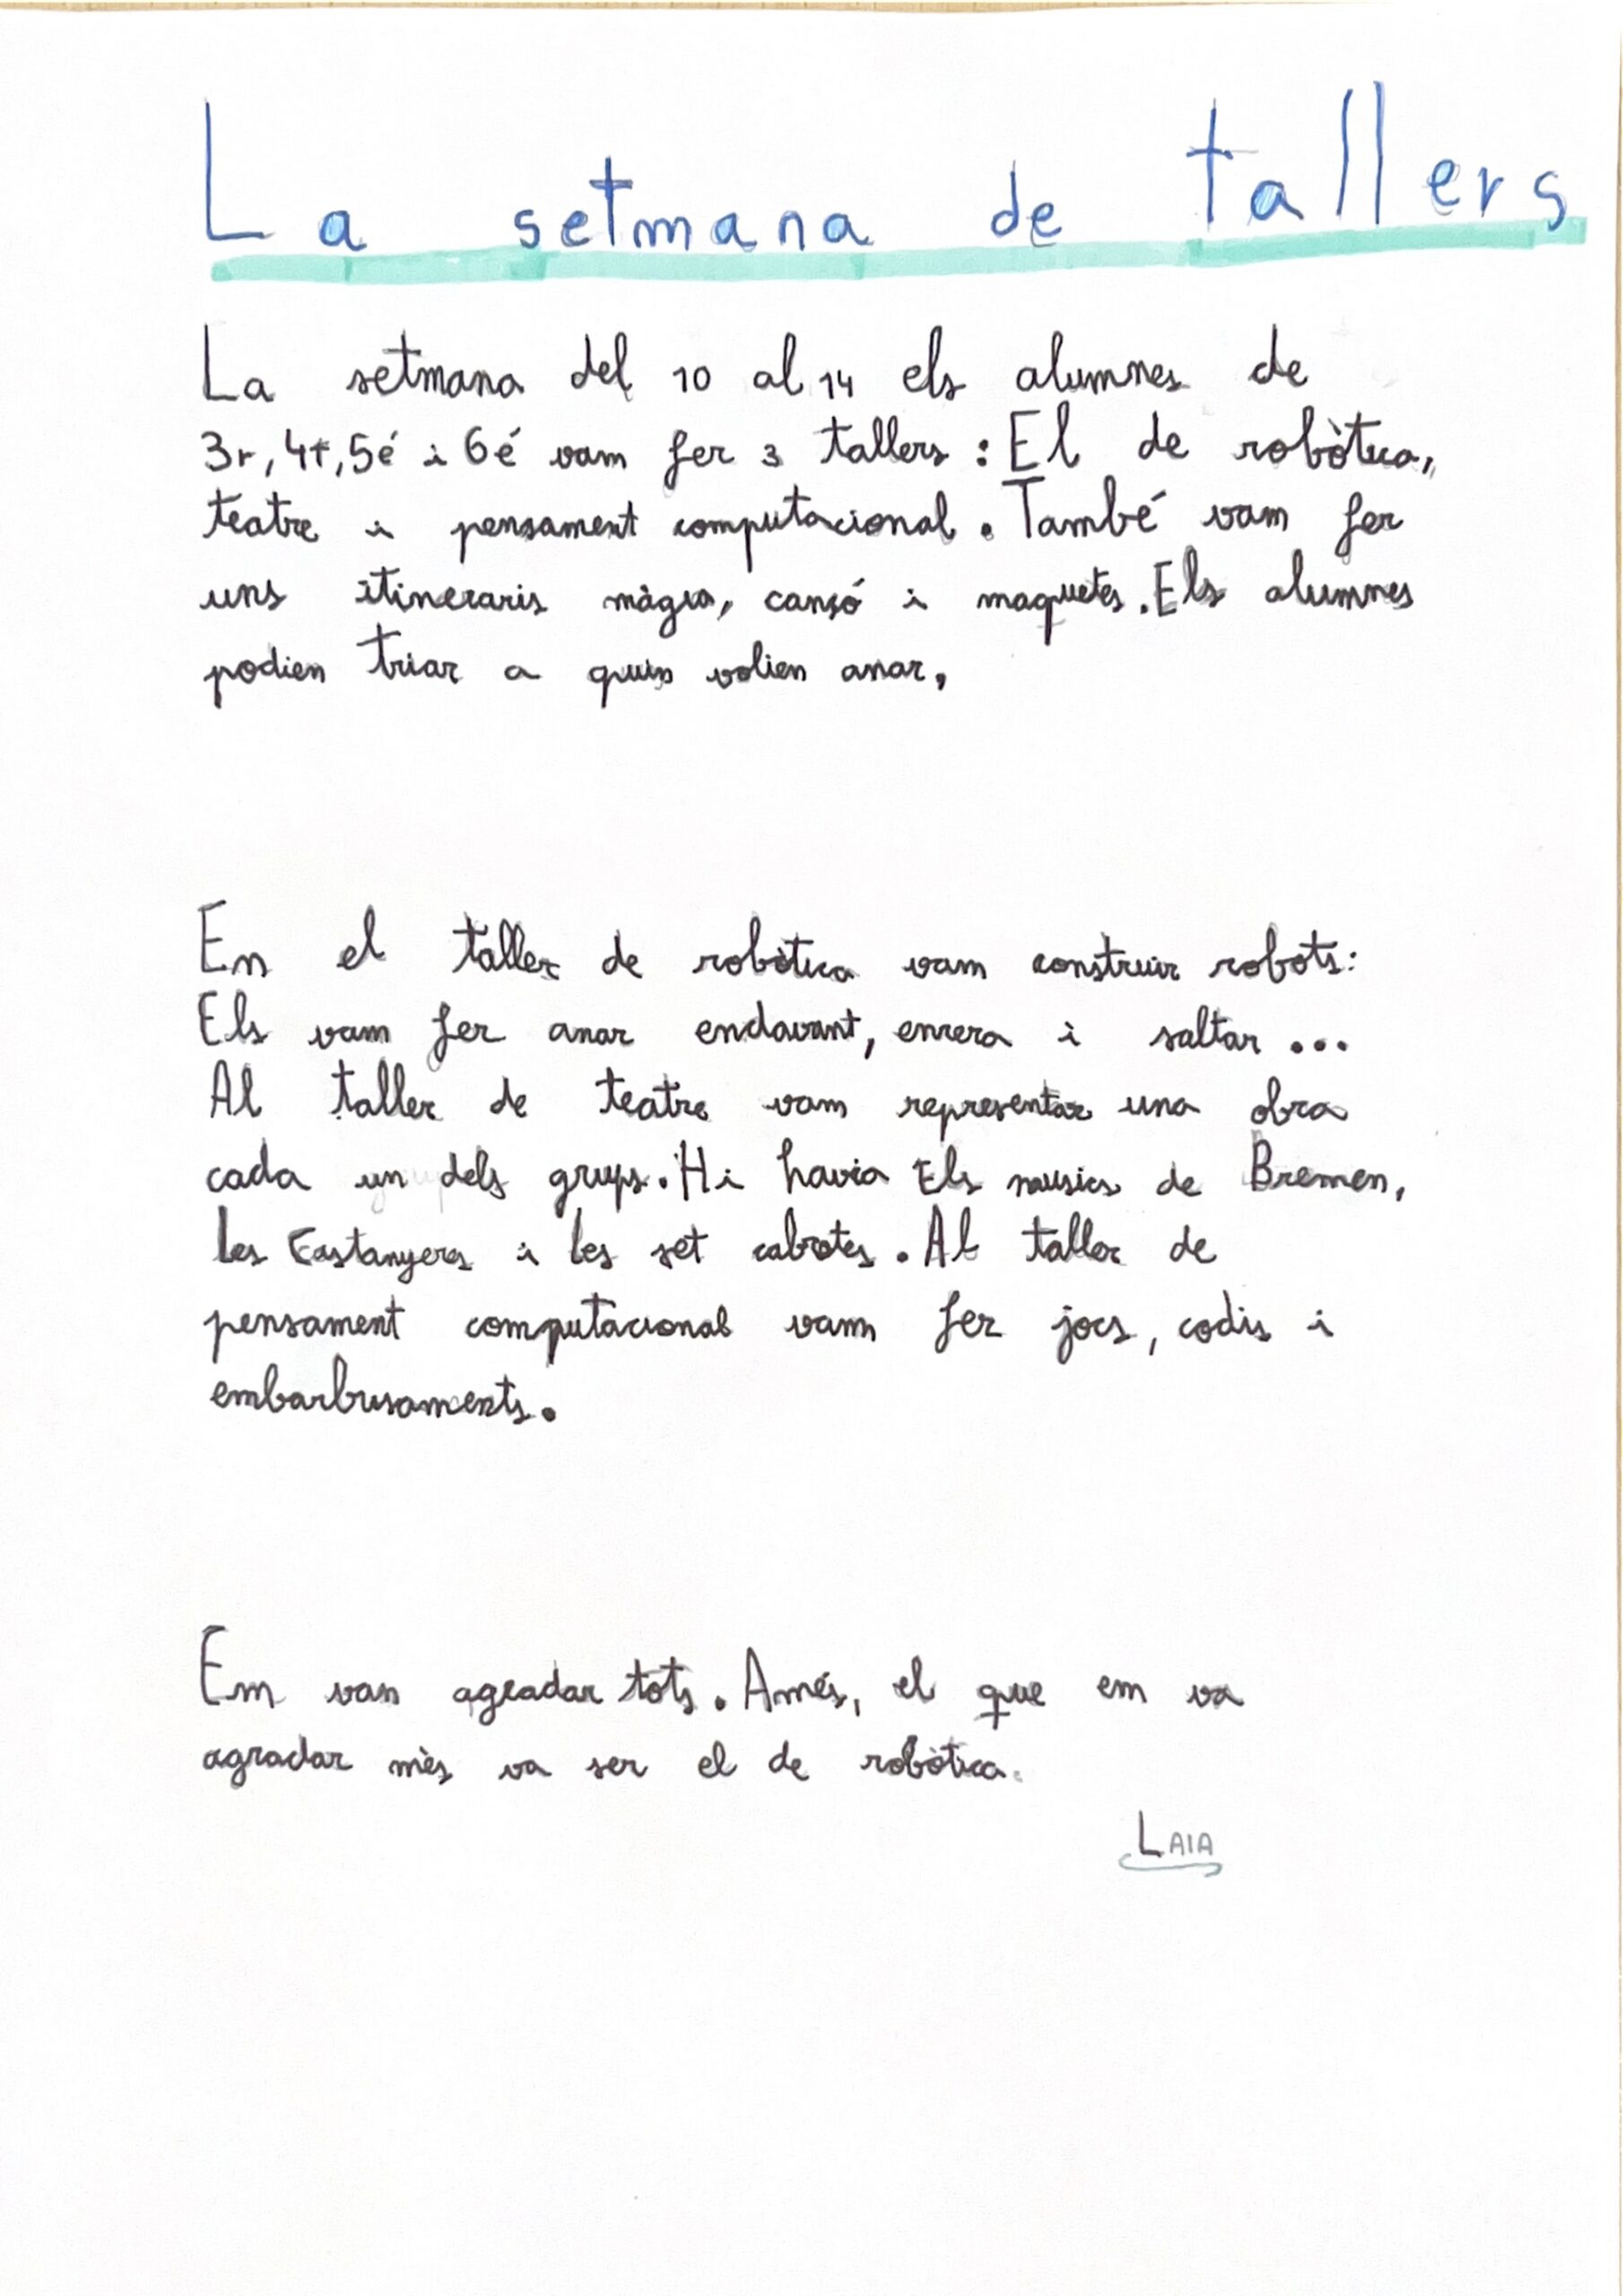 La setmana de tallers
La setmana del 10 al 14 els alumnes de
3r, 4t, 5é i 6é vam fer 3 tallers : El de robòtica,
teatre i pensament computacional. També vam fer
uns itineraris màgia, cançó i maquetes. Els alumnes
podien triar a quin volien anar,
En el taller de robòtica vam construir robots:
Els vam fer anar endavant, enrera i saltar ...
Al taller de teatre vam representar una obra
cada un dels grups. Hi havia Els musics de Bremen,
les Castanyeres i les set cabretes. Al taller de
pensament computacional vam fer jocs, codis i
embarbusaments.
Em van agradar tots. Amés, el que em va
agradar mès va ser el de robòtica.
LAIA